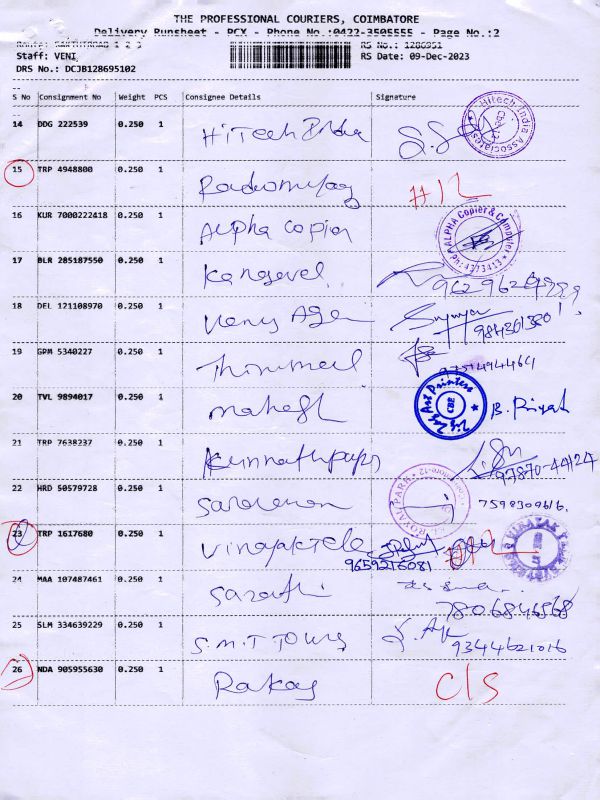 THE PROFESSIONAL COURIERS, COIMBATORE
Delivery Runsheet - PCX - Phone No.:0422-3505555 - Page No.:2
RS No.: 1286951
Staff: VENI
RS Date: 09-Dec-2023
DRS No.: DCJB128695102
S No Consignment No Weight PCS Consignee Details Signature
14 DDG 222539 0.250 1 HiTech India Hitech India Associates
15 TRP 4948800 0.250 1 #12
16 KUR 7000222418 0.250 1 Alpha Copier ALPHA Copier & Computer
17 BLR 285187550 0.250 1 Kangavel
18 DEL 121108970 0.250 1
19 GPM 5340227 0.250 1
20 TVL 9894017 0.250 1 Mahesh Zig Zag Art Printers CBE B. Priyah
21 TRP 7638237 0.250 1 97870-44124
22 HRD 50579728 0.250 1 Saravanan ROYAL PARK 7598309616.
23 TRP 1617680 0.250 1 Vinayak Tele VINAYAK #12
9659216081
24 MAA 107487461 0.250 1 Sarathi
7806846568
25 SLM 334639229 0.250 1 S.M.T TOURS
9344621016
26 NDA 905955630 0.250 1 C/S